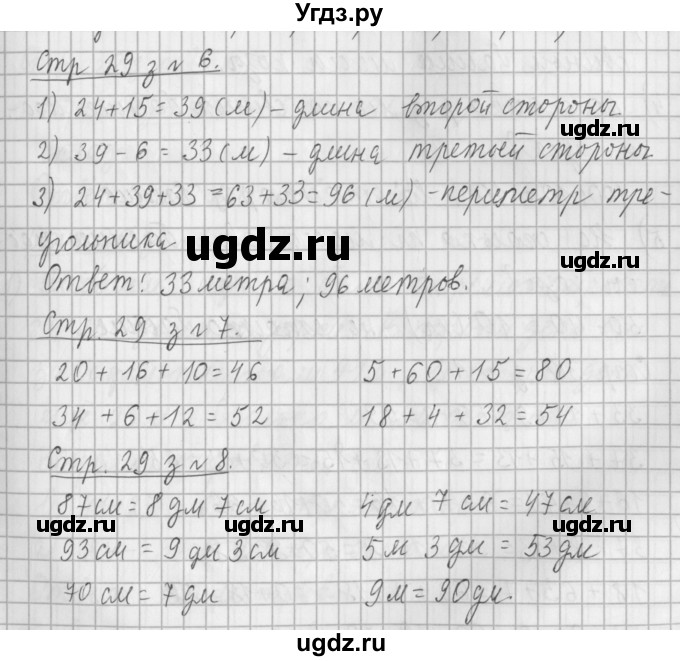 Угдз.ру
Стр 29 з г 6.
1) 24+15=39(м) - длина второй стороны
ugdz.ru
2) 39-6=33(м) - длина третьей стороны
3) 24+39+33=63+33=96(м) - периметр тре-
угольника
ugdz.ru
ugdz.ru
Ответ: 33 метра; 96 метров.
Стр. 29 з г 7.
20+16+10=46 5+60+15=80
34+6+12=52 18+4+32=54
Стр. 29 з г 8.
87см=8дм 7см 4дм 7см=47см
ugdz.ru ugdz.ru
93см=9дм 3см 5м 3дм=53дм
70см=7дм 9м=90дм.
ugdz.ru ugdz.ru
ugdz.ru